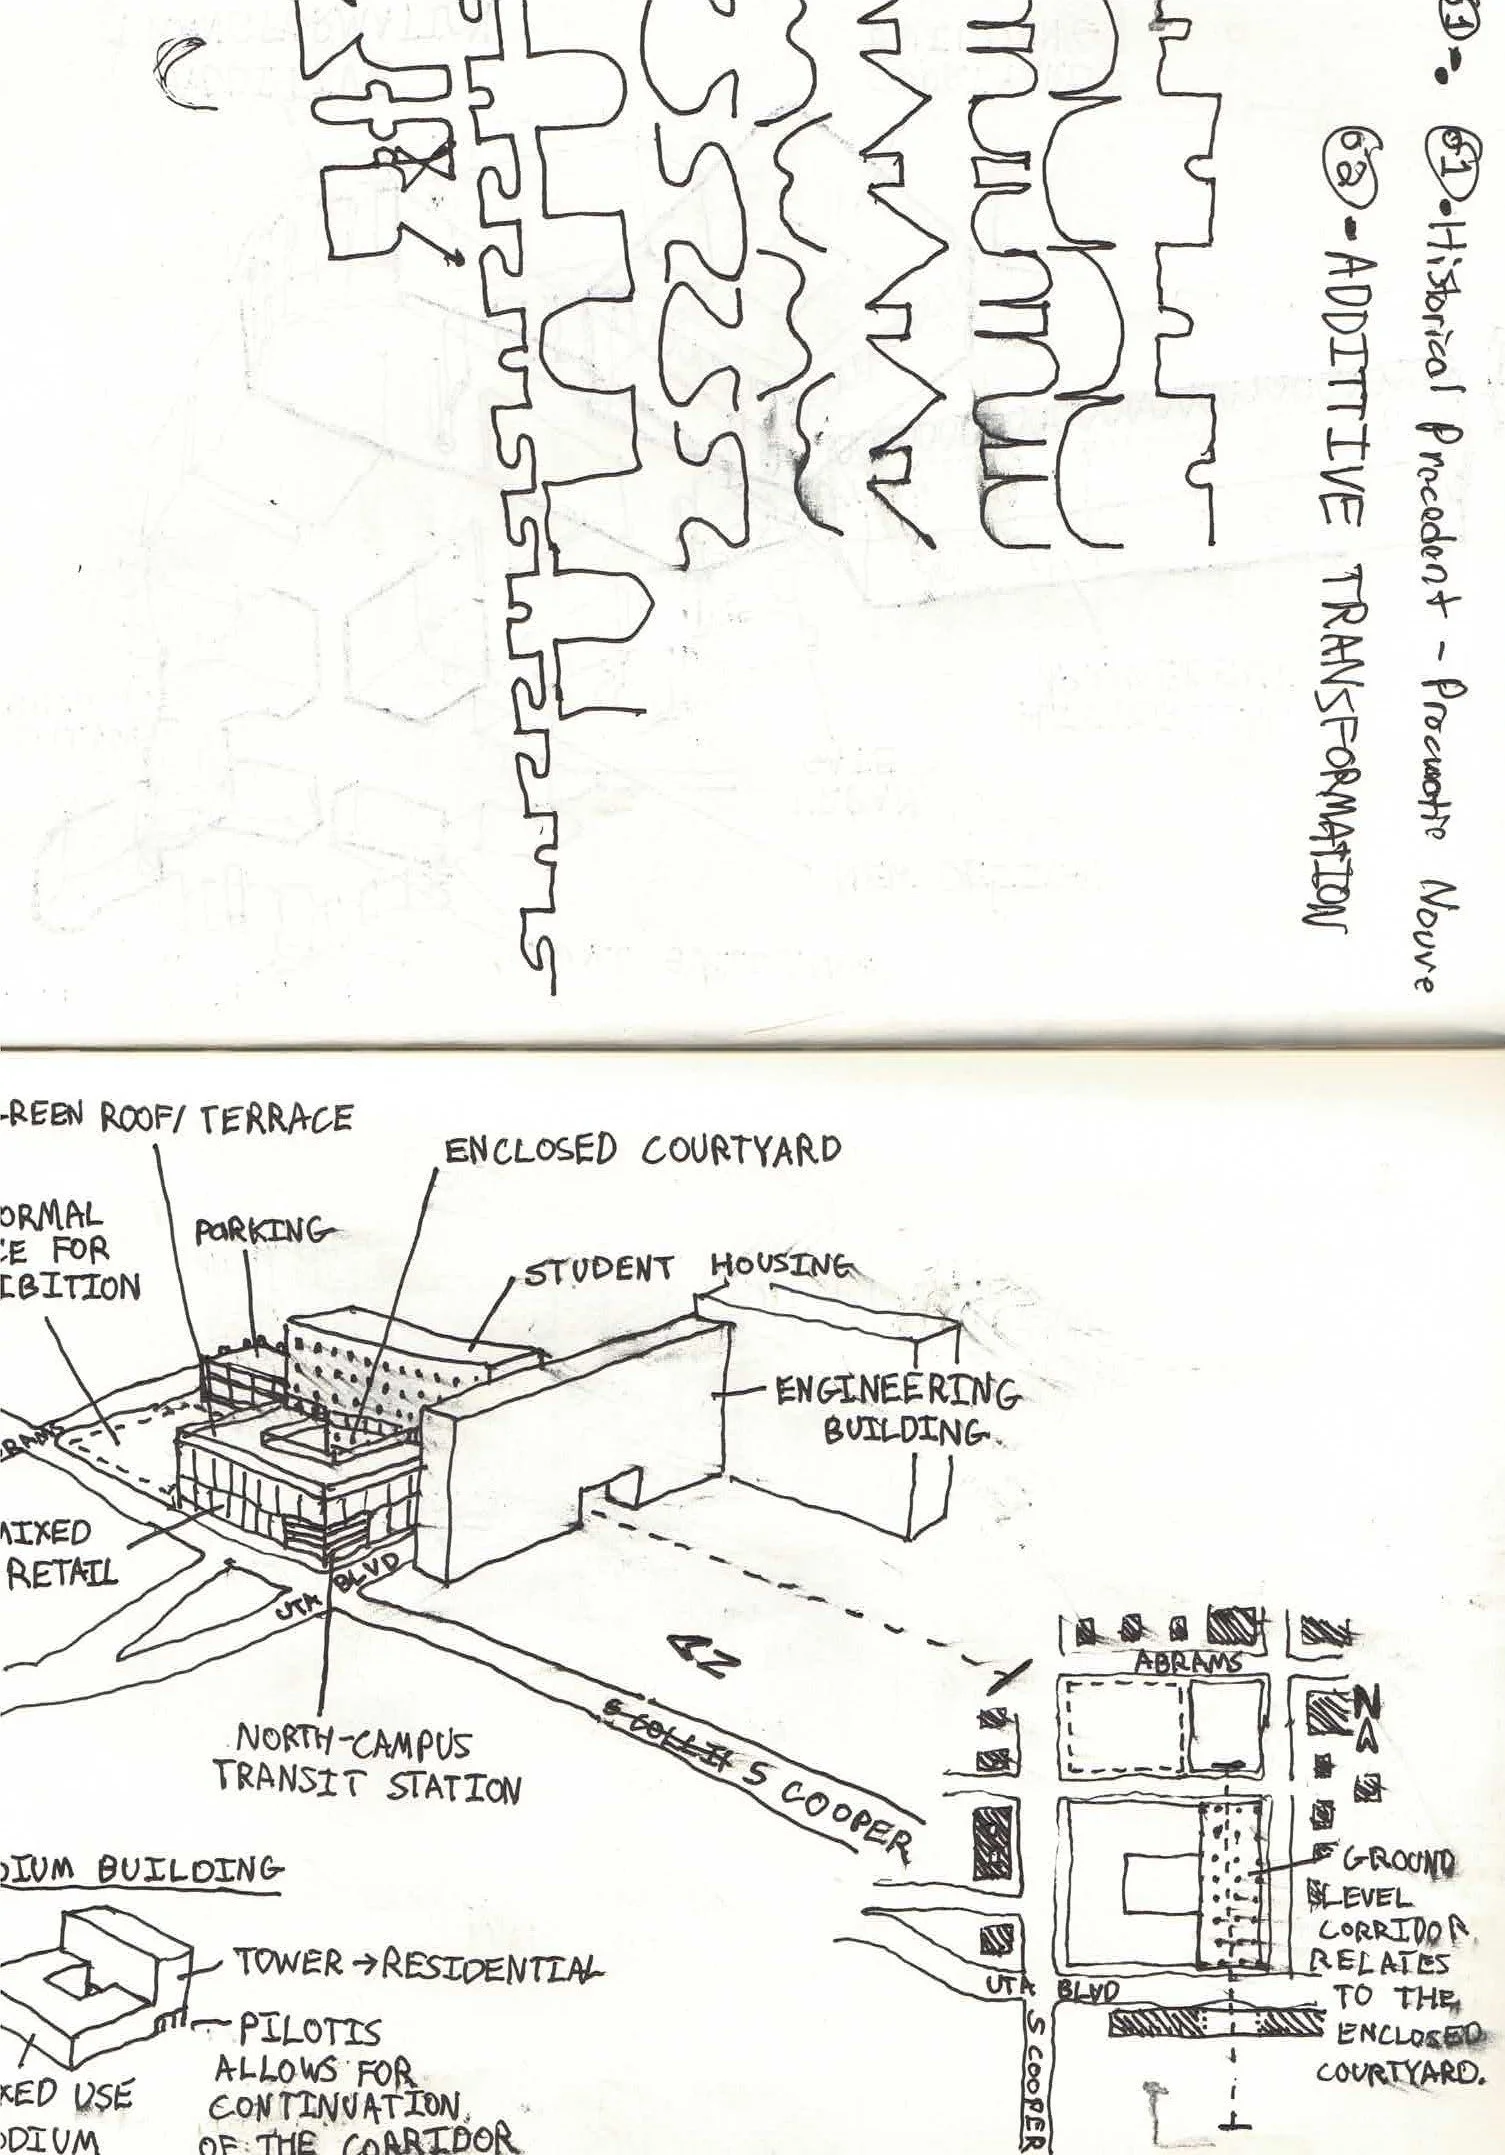 61 • Historical Precedent - Procmatic Nouve
62 - ADDITIVE TRANSFORMATION
REEN ROOF/ TERRACE
ENCLOSED COURTYARD
ORMAL
CE FOR
IBITION
PARKING
STUDENT HOUSING
ENGINEERING
BUILDING
MIXED
RETAIL
UTA BLVD
N
NORTH-CAMPUS
TRANSIT STATION
S COOPER
ABRAMS
N
GROUND
LEVEL
CORRIDOR
RELATES
TO THE
ENCLOSED
COURTYARD.
UTA BLVD
S COOPER
DIUM BUILDING
TOWER → RESIDENTIAL
PILOTIS
ALLOWS FOR
CONTINUATION
OF THE CORRIDOR
XED USE
ODIUM